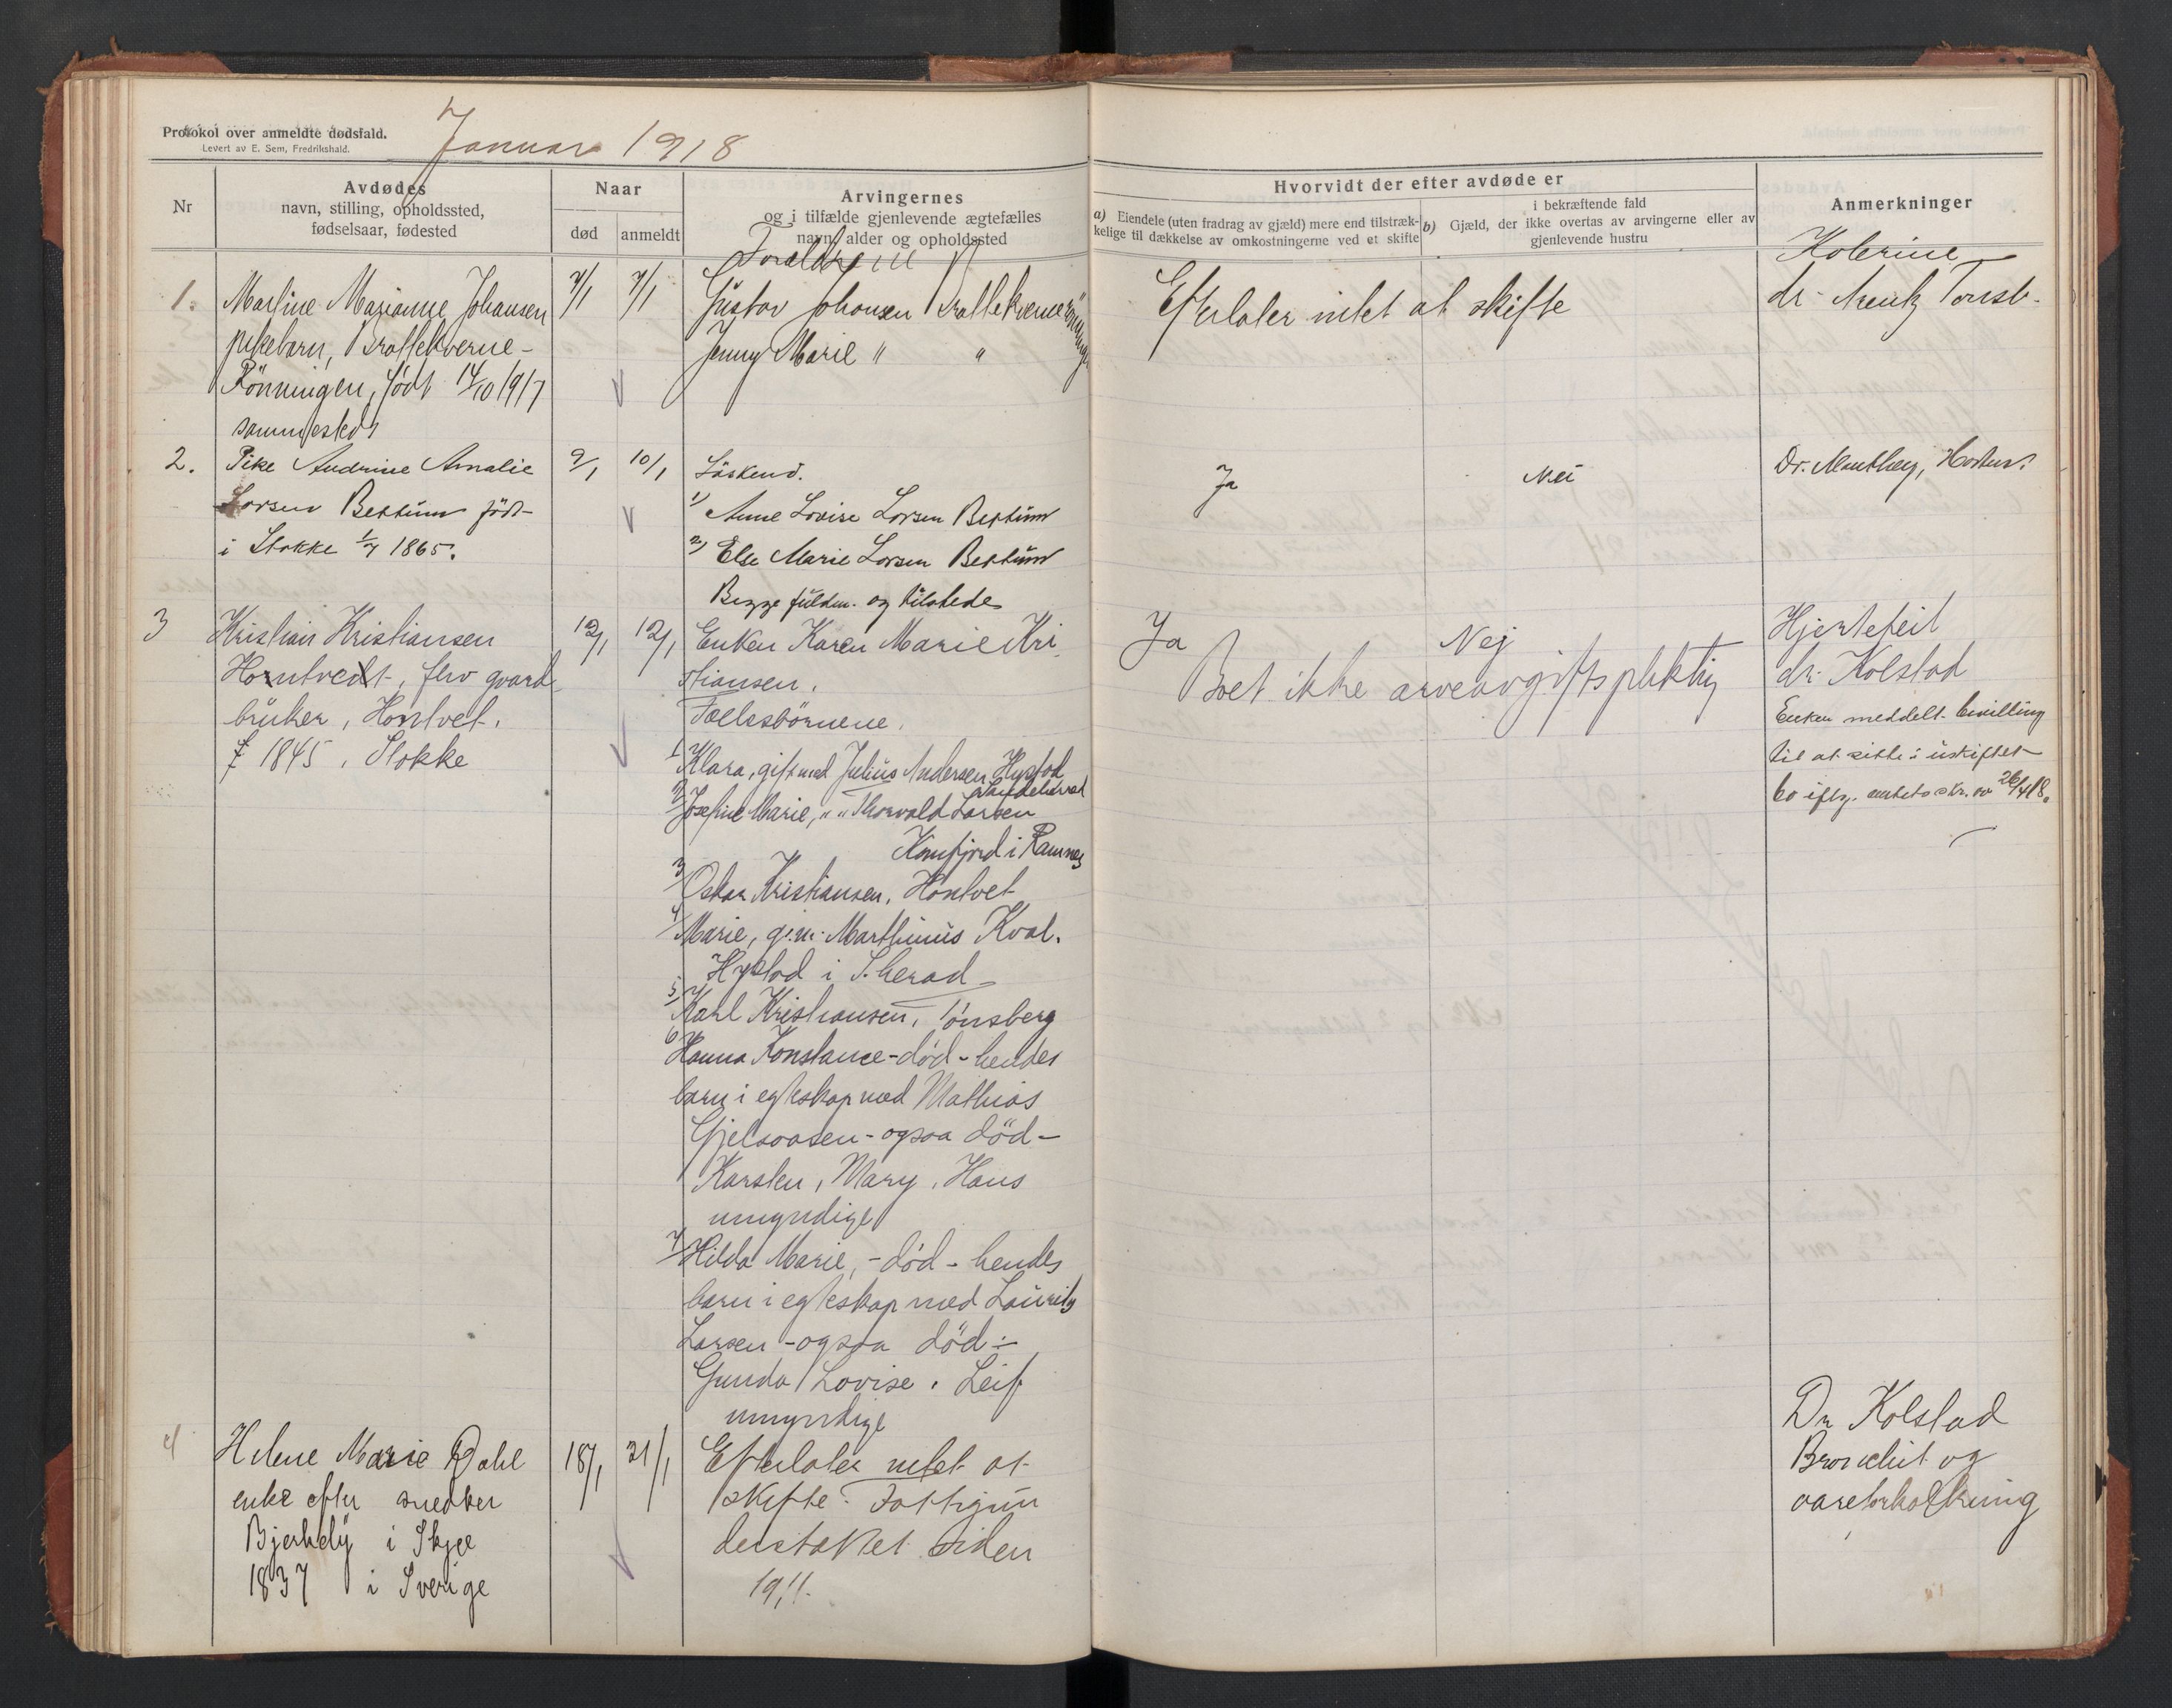 Protokol over anmeldte dødsfald.
Levert av E. Sem, Fredrikshald.
Januar 1918
Nr
Avdødes
navn, stilling, opholdssted,
fødselsaar, fødested
Naar
død
anmeldt
Arvingernes
og i tilfælde gjenlevende ægtefælles
navn, alder og opholdssted
Hvorvidt der efter avdøde er
a) Eiendele (uten fradrag av gjæld) mere end tilstræk-
kelige til dækkelse av omkostningerne ved et skifte
i bekræftende fald
b) Gjæld, der ikke overtas av arvingerne eller av
gjenlevende hustru
Anmerkninger
1.
Martine Marianne Johansen
pikebarn, Brattekverne-
Rönningen, født 14/10 1917
sammesteds
7/1
7/1
Forældrene
Gustav Johansen Brattekverneröningen
Jenny Marie " "
Efterlater intet at skifte
Kolerine
dr. Arentz Tønsb.
2.
Pike Andrine Amalie
Larsen Bettum född
i Stokke 1/7 1865.
9/1
10/1
Söskend.
1) Anne Lovise Larsen Bettum
2) Else Marie Larsen Bettum
Begge fuldm. og tilstede
Ja
Nei
Dr. Manthey, Horten.
3
Kristian Kristiansen
Hontvedt, fhv gaard
bruker, Hontvet.
f 1845, Stokke
12/1
12/1
Enken Karen Marie Kri
stiansen.
Fællesbörnene.
1/ Klara, gift med Julius Andersen Hystad
Sandeherred
2/ Josefine Marie, " " Thorvald Larsen
i Ramnes
3/ Oskar Kristiansen, Hontvet
4/ Marie, g.m. Marthinius Kval.
Hystad i S.herad
5/ Karl Kristiansen, Tønsberg
6/ Hanna Konstance - død - hendes
barn i egteskap med Mathias
Gjelsaasen - ogsaa död -
Karsten, Mary, Hans
umyndige
7/ Hilda Marie, - död - hendes
barn i egteskap med Lauritz
Larsen - ogsaa död -
Gunda Lovise, Leif
umyndige
Ja
Nej
Boet ikke arveavgiftspliktig
Hjertefeil
dr. Kolstad
Enken meddelt bevilling
til at sitte i uskiftet
bo iflg. amtets skr. av 26/4 18.
4
Helene Marie Dahl
enke efter snedker
Bjerkely i Skjee
1837 i Sverige
18/1
21/1
Efterlater intet at
skifte. Fattigun
derstøttet siden
1911.
Dr Kolstad
Bronchit og
aareforkalkning